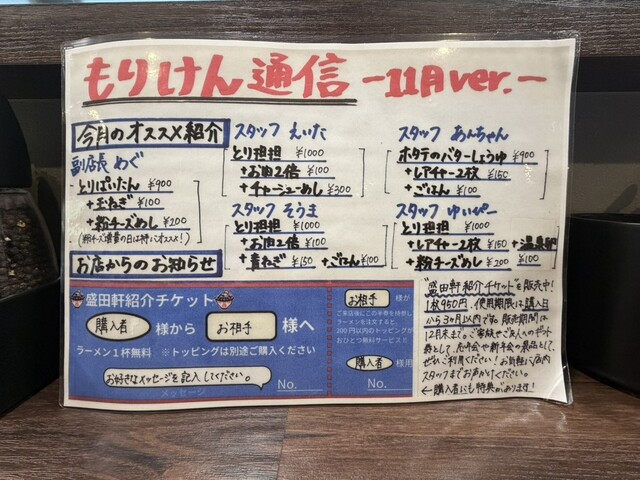 もりけん通信 -11月ver.-
今月のオススメ紹介
副店長 めぐ
とりぱいたん ¥900
+玉ねぎ ¥100
+粉チーズめし ¥200
スタッフ えいた
とり担担 ¥1000
+お肉2倍 ¥100
+チャーシューめし ¥300
スタッフ そうま
とり担担 ¥1000
+お肉2倍 ¥100
+青ねぎ ¥150 +ごはん ¥100
スタッフ あんちゃん
ホタテのバターしょうゆ ¥900
+レアチャー2枚 ¥150
+ごはん ¥100
スタッフ ゆいぴー
とり担担 ¥1000
+レアチャー2枚 ¥150 +温泉卵
+粉チーズめし ¥200 ¥100
お店からのお知らせ
盛田軒紹介チケット
購入者 様から お相手 様へ
ラーメン1杯無料 ※トッピングは別途ご購入ください
お好きなメッセージを記入してください。
メッセージ
No.
お相手 様が
ご来店後にこの半券を持参し
ラーメンを注文すると
100円以内のトッピングが
おひとつ無料サービス!!
購入者 様用
No.
"盛田軒紹介チケット"を販売中!
1枚950円。使用期限は購入日
から3ヶ月以内です。販売期間は
12月末まで。ご家族やご友人へのギフト
券として、忘年会や新年会の景品として、
ぜひご利用ください!お気軽に店内
スタッフまでお声かけください。
←購入者にも特典があります!